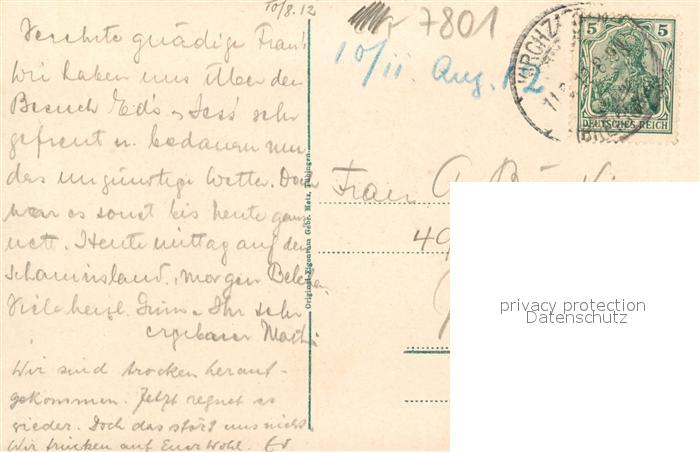 10/8.12
7801
Verehrte gnädige Frau!
Wir haben uns über den
Besuch Ed's u. Jess' sehr
gefreut u. bedauern nur
das ungünstige Wetter. Doch
war es sonst bis heute ganz
nett. Heute mittag auf den
Schauinsland, morgen Belchen.
Viele herzl. Grüsse Ihr sehr
ergebener
Wir sind trocken herauf-
gekommen. Jetzt regnet es
wieder. Doch das stört uns nicht
Wir trinken auf Euer Wohl. Ed
Original-Eigentum Gebr. Metz, Tübingen
10/11. Aug. 12
5 5
DEUTSCHES REICH
KIRCHZ
Frau G.
49
privacy protection
Datenschutz